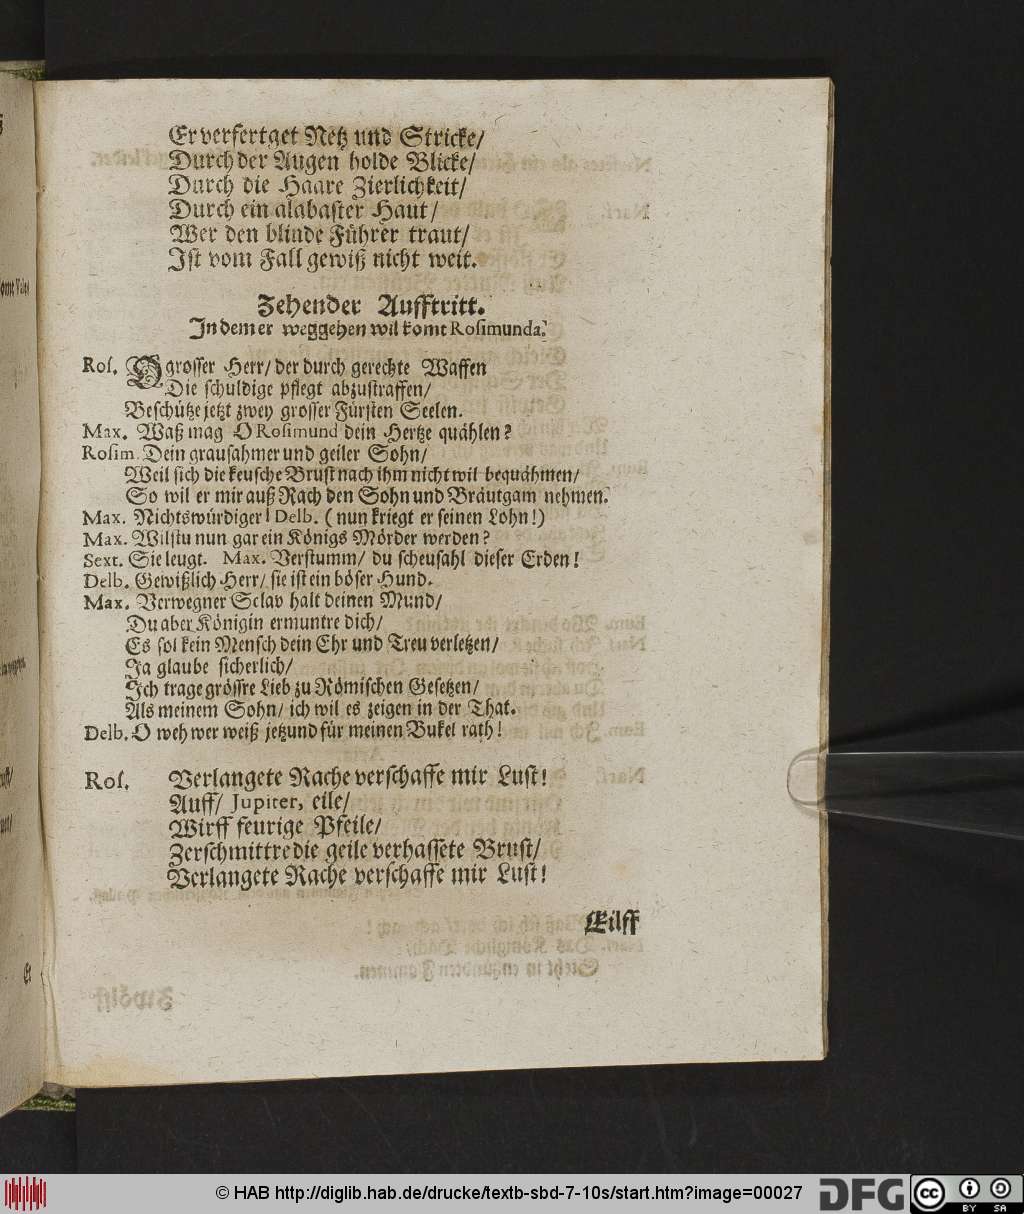 Er verfertget Netz und Stricke/
Durch der Augen holde Blicke/
Durch die Haare Zierlichkeit/
Durch ein alabaster Haut/
Wer den blinde Führer traut/
Ist vom Fall gewiß nicht weit.
Zehender Aufftritt.
In dem er weggehen wil komt Rosimunda.
Ros. O grosser Herr/ der durch gerechte Waffen
Die schuldige pflegt abzustraffen/
Beschütze jetzt zwey grosser Fürsten Seelen.
Max. Waß mag O Rosimund dein Hertze quählen?
Rosim. Dein grausahmer und geiler Sohn/
Weil sich die keusche Brust nach ihm nicht wil bequähmen/
So wil er mir auß Rach den Sohn und Bräutgam nehmen.
Max. Nichtswürdiger! Delb. (nun kriegt er seinen Lohn!)
Max. Wilstu nun gar ein Königs Mörder werden?
Sext. Sie leugt. Max. Verstumm/ du scheusahl dieser Erden!
Delb. Gewißlich Herr/ sie ist ein böser Hund.
Max. Verwegner Sclav halt deinen Mund/
Du aber Königin ermuntre dich/
Es sol kein Mensch dein Ehr und Treu verletzen/
Ja glaube sicherlich/
Ich trage grössre Lieb zu Römischen Gesetzen/
Als meinem Sohn/ ich wil es zeigen in der That.
Delb. O weh wer weiß jetzund für meinen Bukel rath!
Ros. Verlangete Rache verschaffe mir Lust!
Auff/ Jupiter, eile/
Wirff feurige Pfeile/
Zerschmittre die geile verhassete Brust/
Verlangete Rache verschaffe mir Lust!
Eilff
© HAB http://diglib.hab.de/drucke/textb-sbd-7-10s/start.htm?image=00027
DFG
cc BY SA